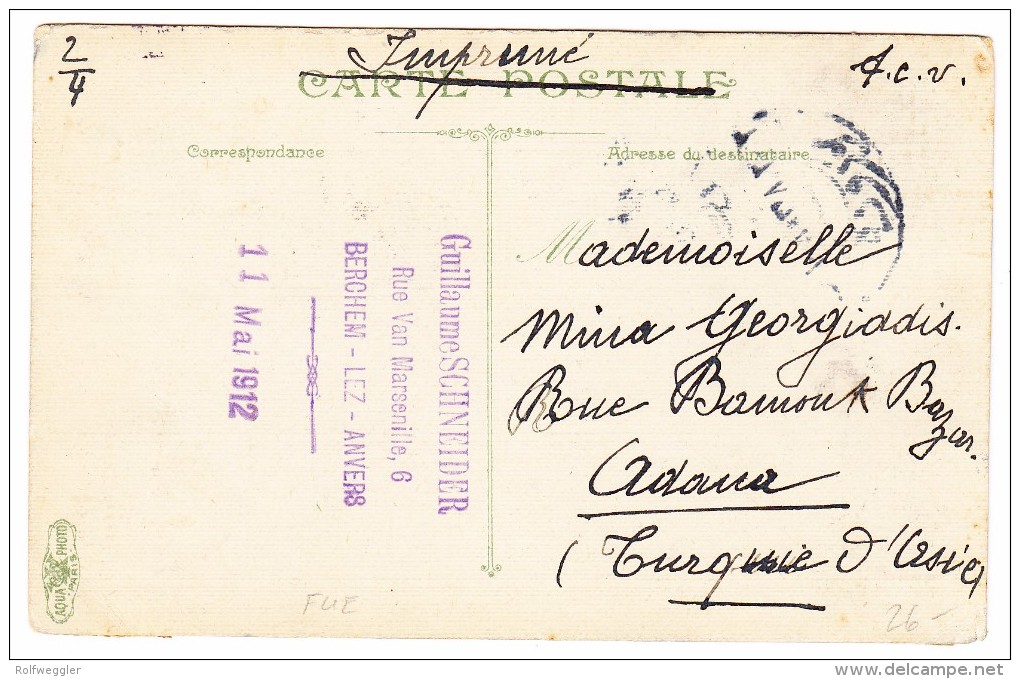 2/4
Imprimé
f.c.v.
CARTE POSTALE
Correspondance
Adresse du destinataire
Guillaume SCHNEIDER
Rue Van Marsenille, 6
BERCHEM - LEZ - ANVERS
11 Mai 1912
Mademoiselle
Mina Georgiadis.
Rue Bamouk Bazar.
Adana
(Turquie d'Asie)
AQUA PHOTO
PARIS
FUE
26-
Rolfweggler
www.delcampe.net